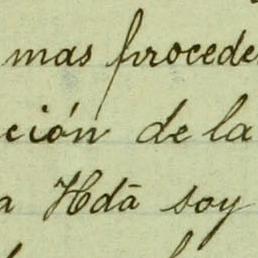 mas procede
ción de la
a Hdā soy